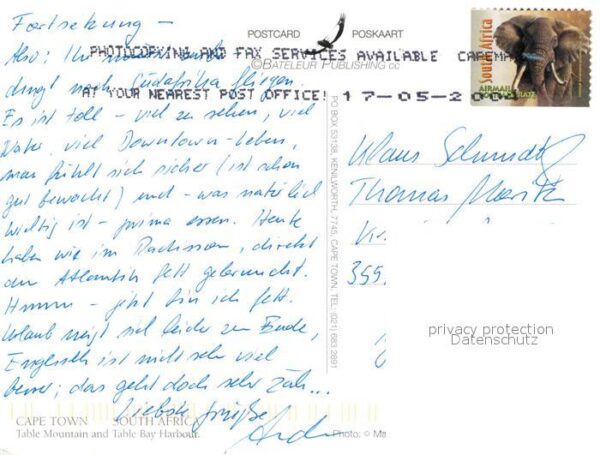 Fortsetzung –
Also: Ihr müsst unbedingt
dingt nach Südafrika fliegen.
Es ist toll – viel zu sehen, viel
Natur, viel Downtown-Leben,
man fühlt sich sicher (ist schon
gut bewacht) und – was natürlich
wichtig ist – prima essen. Heute
haben wir im Radisson, direkt
am Atlantik fett gebruncht.
Hmmm – jetzt bin ich fett.
Urlaub neigt sich leider zu Ende,
Englisch ist nicht sehr viel
besser; das geht doch sehr zäh...
Liebste Grüße
POSTCARD POSKAART
PHOTOCOPYING AND FAX SERVICES AVAILABLE
©BATELEUR PUBLISHING CC
AT YOUR NEAREST POST OFFICE! 17-05-2004
South Africa
AIRMAIL
POSTCARD RATE
PO BOX 53138, KENILWORTH, 7745, CAPE TOWN. TEL. (021) 683 2891
Klaus Schmidt
Thomas Moritz
Kr.
355
privacy protection
Datenschutz
CAPE TOWN SOUTH AFRICA
Table Mountain and Table Bay Harbour.
Photo: © Ma